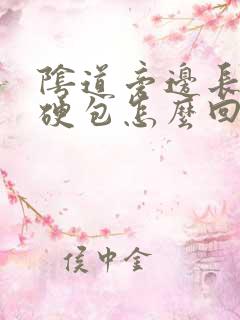 陰道旁邊長
硬包怎麼回
侯中金